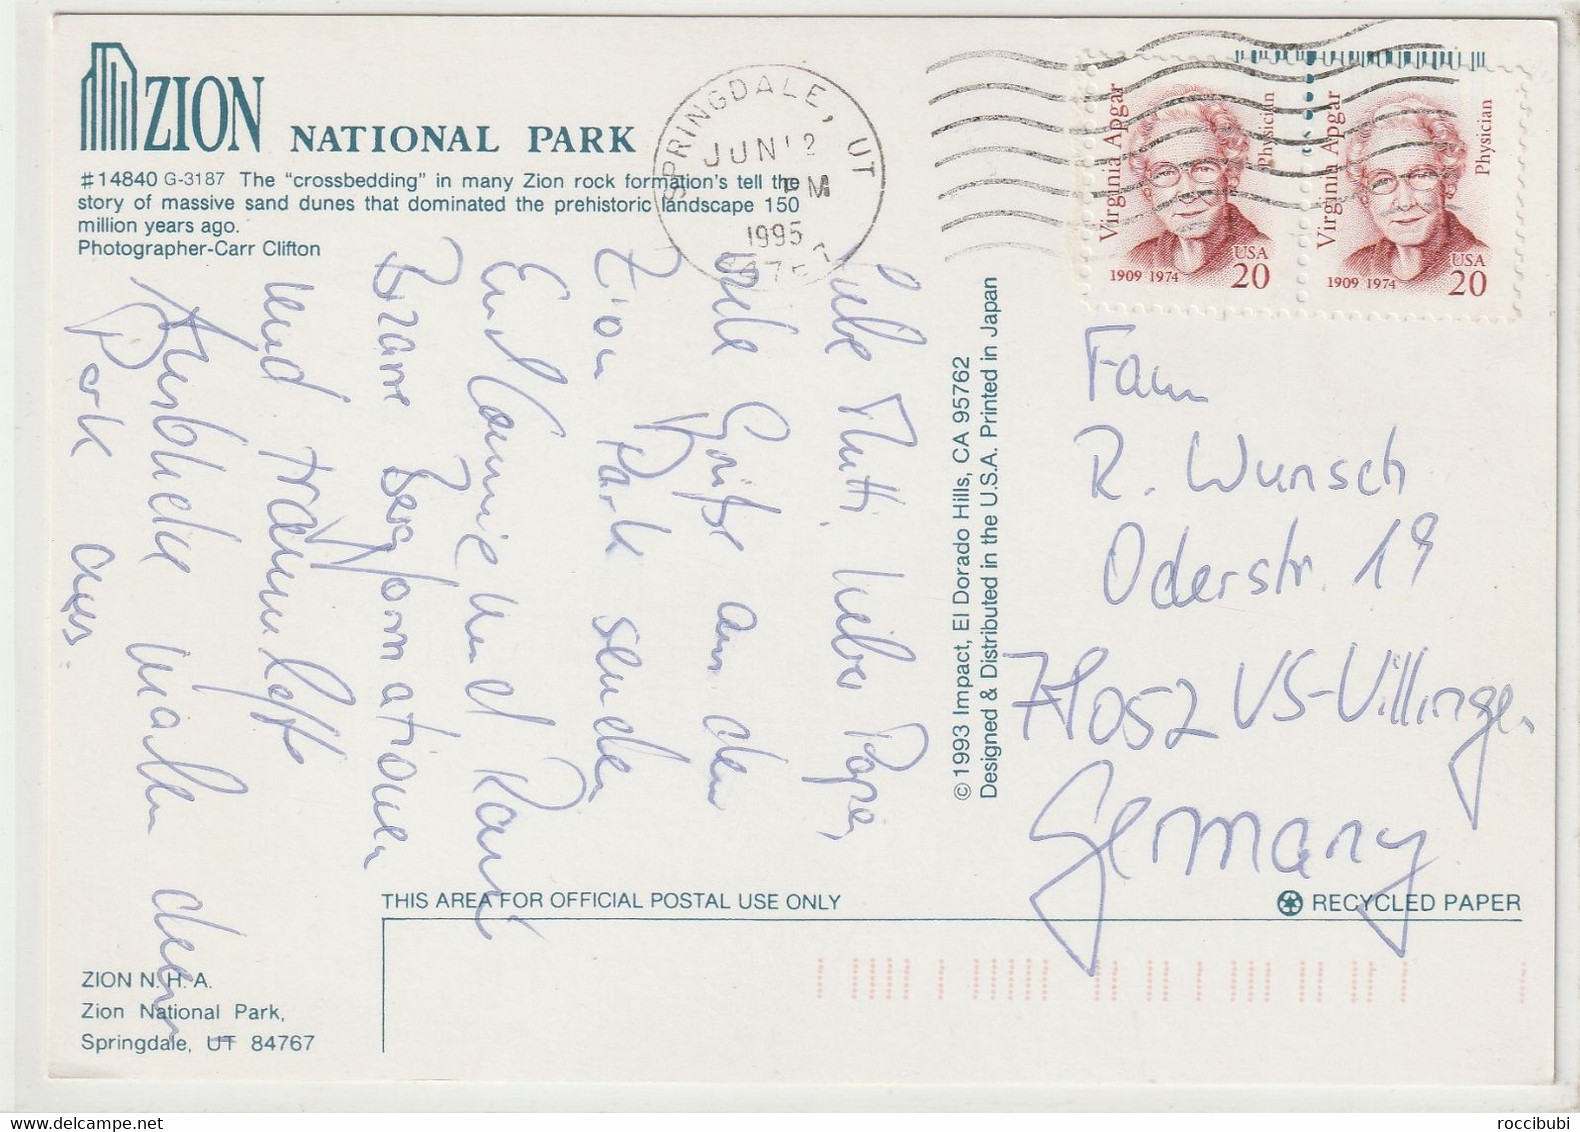 ZION NATIONAL PARK
#14840 G-3187 The "crossbedding" in many Zion rock formation's tell the
story of massive sand dunes that dominated the prehistoric landscape 150
million years ago.
Photographer-Carr Clifton
SPRINGDALE, UT
JUN 12
PM
1995
Virginia Apgar
Physician
USA
1909 1974 20
Virginia Apgar
Physician
USA
1909 1974 20
Liebe Mutti, lieber Papa,
viele Grüße aus dem
Zion Park senden
Euch Connie und
Bizarre
und traumhafte
Ausblicke
Park aus.
©1993 Impact, El Dorado Hills, CA 95762
Designed & Distributed in the U.S.A. Printed in Japan
Fam
R. Wunsch
Oderstr. 19
78052 VS-Villingen
Germany
THIS AREA FOR OFFICIAL POSTAL USE ONLY
RECYCLED PAPER
ZION N.H.A.
Zion National Park,
Springdale, UT 84767
roccibubi